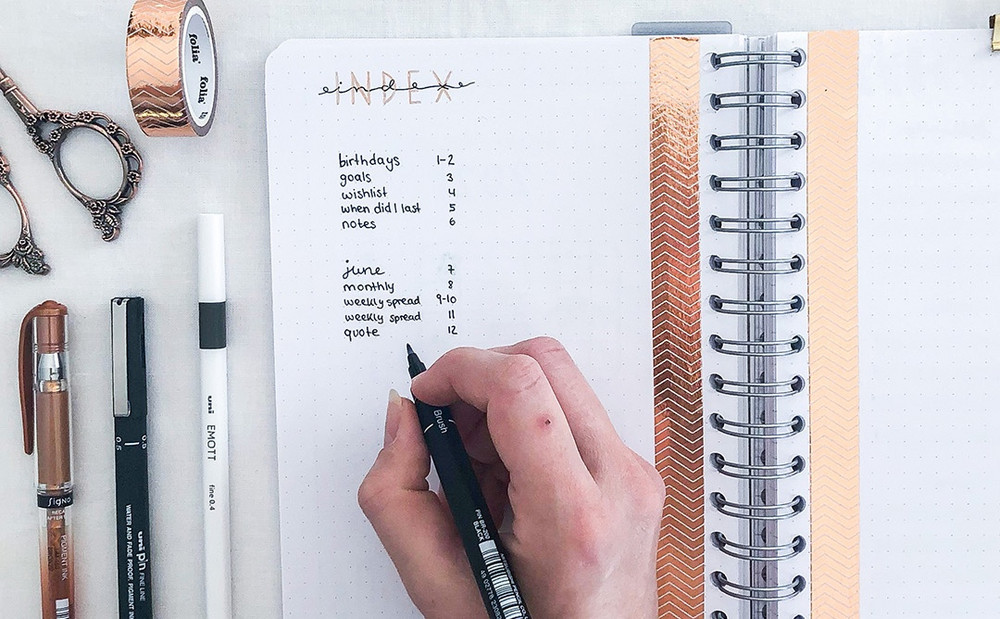 folia®
folia®
INDEX
index
birthdays 1-2
goals 3
wishlist 4
when did I last 5
notes 6
june 7
monthly 8
weekly spread 9-10
weekly spread 11
quote 12
Brush
PIN BR-200
BLACK
SIGNO
PIGMENT INK
0.5
uni pin FINE LINE
WATER AND FADE PROOF, PIGMENT IN
uni EMOTT fine 0.4